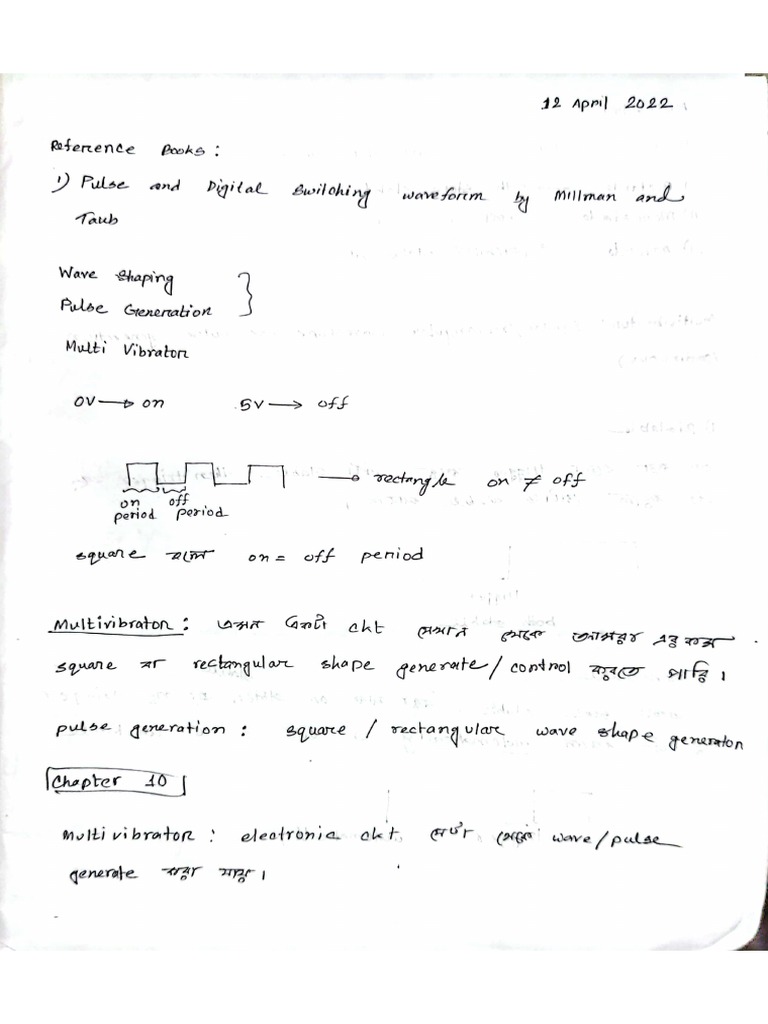 12 April 2022
Reference Books:
1) Pulse and Digital Switching waveform by Millman and
Taub
Wave Shaping
Pulse Generation
Multi Vibrator
0V → on 5V → off
→ rectangle on ≠ off
on off
period period
square হলে on = off period
Multivibrator: এমন একটা ckt যেখান থেকে আমরা এরকম
square বা rectangular shape generate/control করতে পারি।
pulse generation: square / rectangular wave shape generator
Chapter 10
Multivibrator: electronic ckt যেটা থেকে wave/pulse
generate করা যায়।